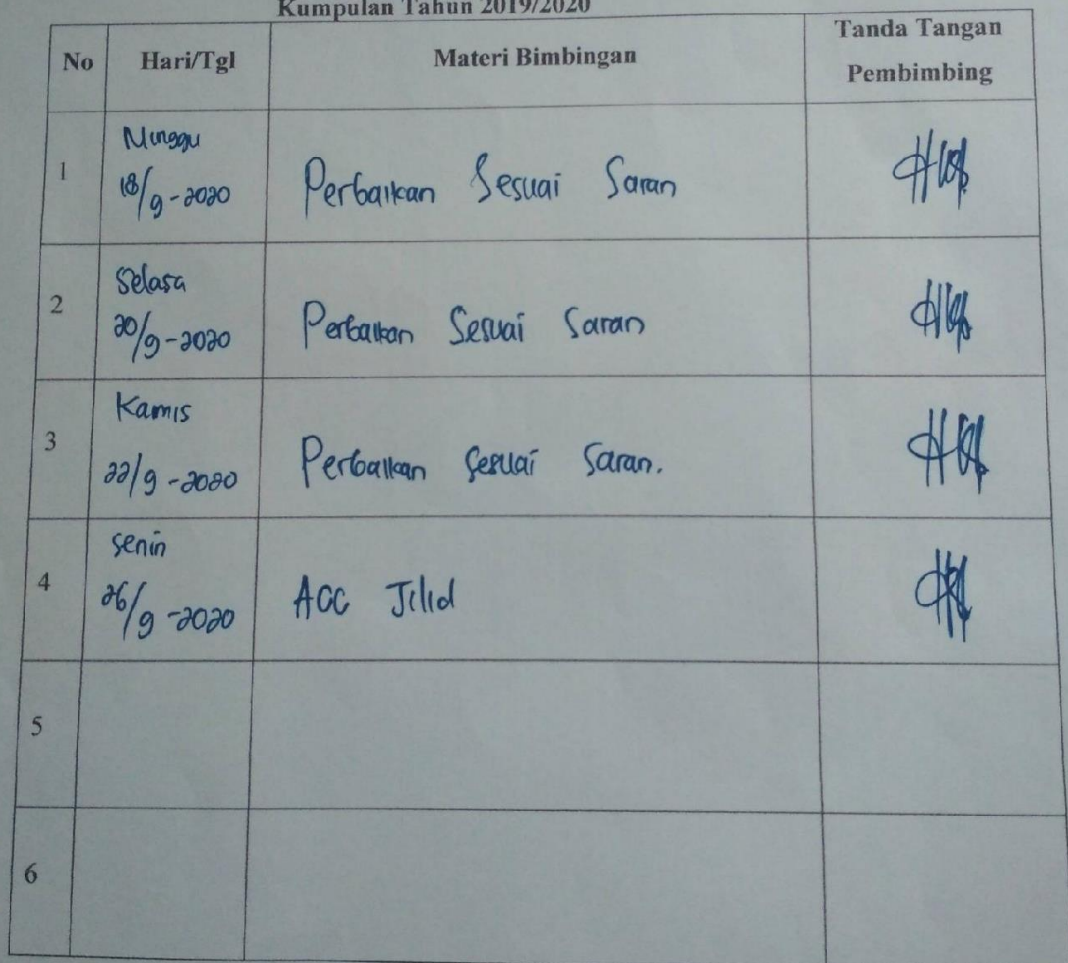 Kumpulan Tahun 2019/2020
No Hari/Tgl Materi Bimbingan Tanda Tangan
Pembimbing
1 Minggu
18/9-2020 Perbaikan Sesuai Saran
2 Selasa
20/9-2020 Perbaikan Sesuai Saran
3 Kamis
22/9-2020 Perbaikan Sesuai Saran.
4 Senin
26/9-2020 ACC Jilid
5
6